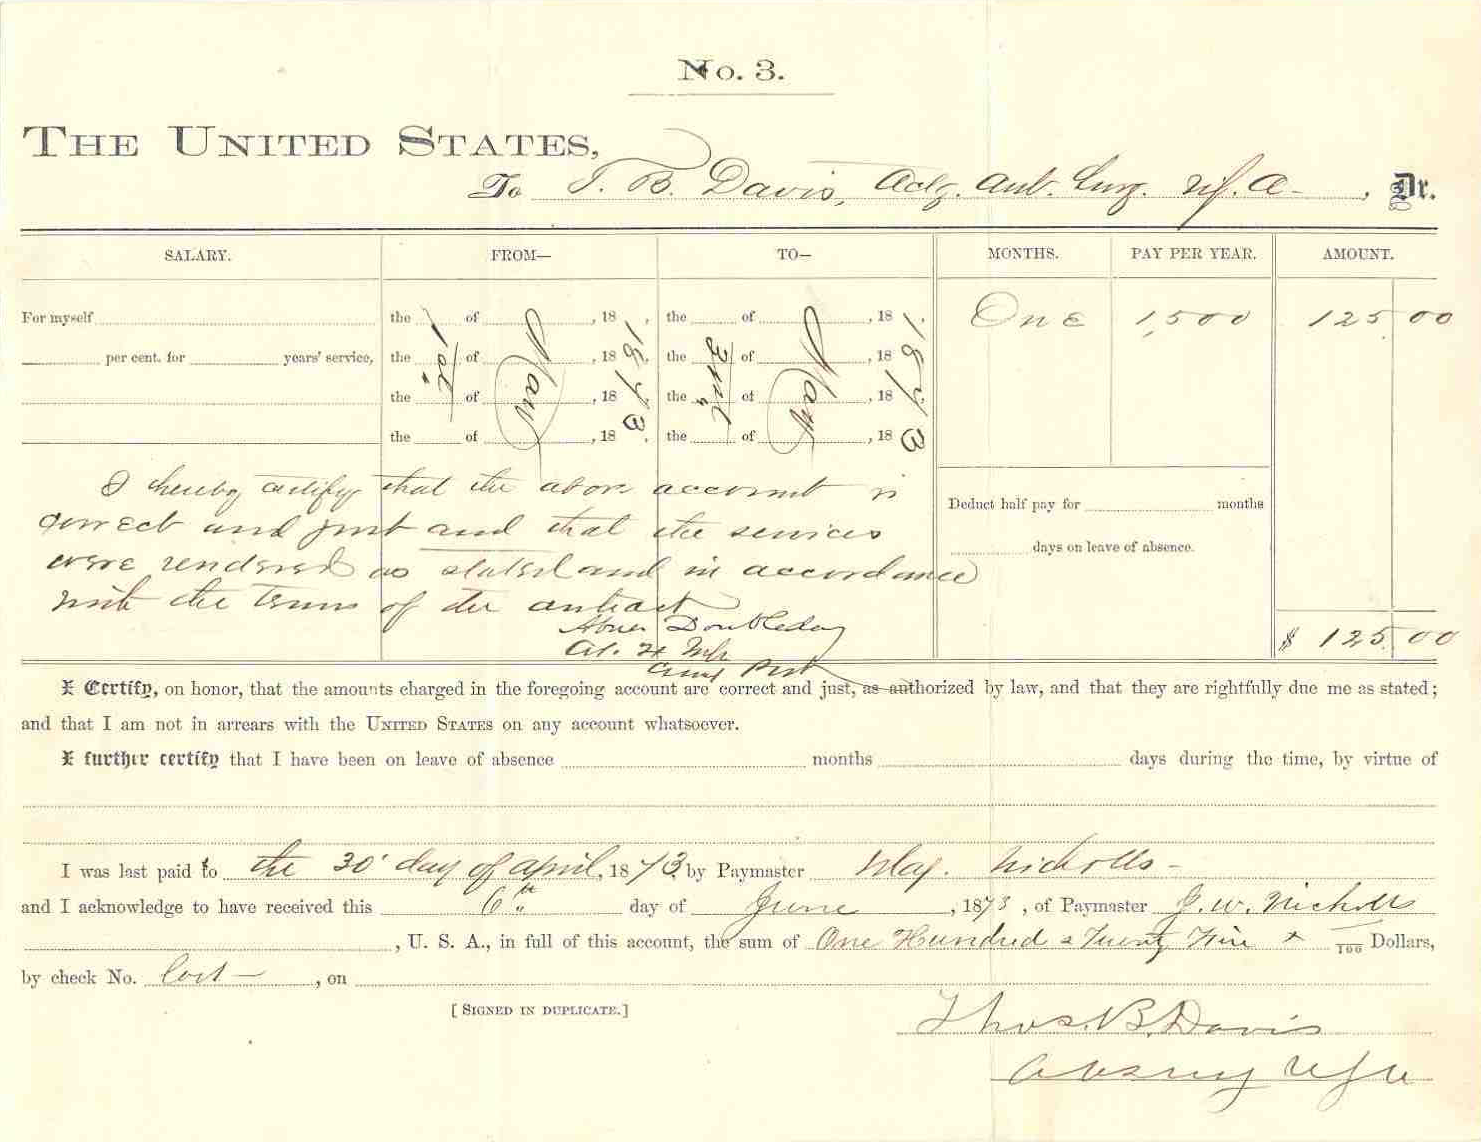 No. 3.
THE UNITED STATES,
To T. B. Davis, Actg. Asst. Surg. U.S.A. , Dr.
SALARY. FROM— TO— MONTHS. PAY PER YEAR. AMOUNT.
For myself the of , 18 , the of , 18 . One 1,500 125 00
per cent. for years' service, the of , 18 the of , 18
the of , 18 the of , 18
the of , 18 . the of , 18
1st May 1873
31st May 1873
I hereby certify that the above account is
correct and just and that the services
were rendered as stated and in accordance
with the terms of the contract
Abner Doubleday
Col. 24 Inf
Comg Post
Deduct half pay for months
days on leave of absence.
$ 125 00
I Certify, on honor, that the amounts charged in the foregoing account are correct and just, as authorized by law, and that they are rightfully due me as stated;
and that I am not in arrears with the UNITED STATES on any account whatsoever.
I further certify that I have been on leave of absence months days during the time, by virtue of
I was last paid to the 30' day of April, 1873 by Paymaster Maj. Nicholls -
and I acknowledge to have received this 6th day of June , 1873 , of Paymaster J. W. Nicholls
, U. S. A., in full of this account, the sum of One Hundred & Twenty Five + /100 Dollars,
by check No. , on
[SIGNED IN DUPLICATE.]
Thos. B. Davis
A A Surg U S A